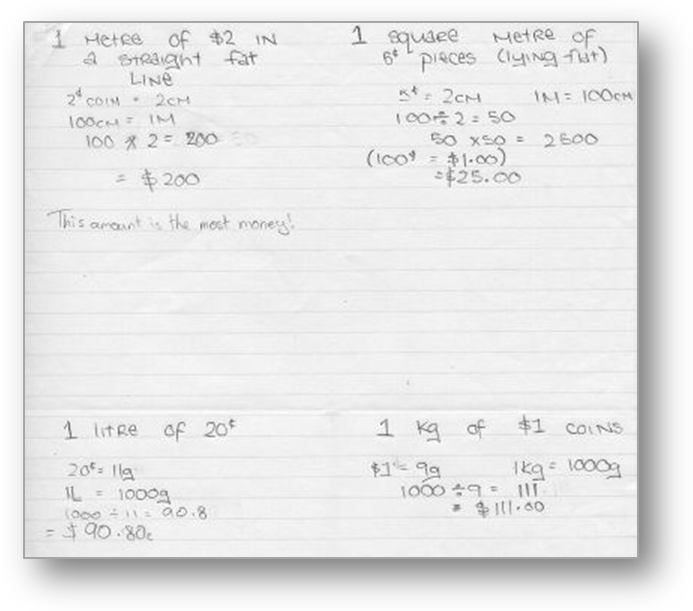 1 METRE OF $2 IN
a straight fat
LINE
2¢ COIN = 2CM
100CM = 1M
100 x 2 = 200
= $200
This amount is the most money!
1 square METRE OF
5¢ pieces (lying flat)
5¢ = 2CM 1M = 100CM
100 ÷ 2 = 50
50 x 50 = 2500
(100¢ = $1.00)
= $25.00
1 litre of 20¢
20¢ = 11g
1L = 1000g
1000 ÷ 11 = 90.8
= $90.80c
1 kg of $1 COINS
$1 = 9g 1kg = 1000g
1000 ÷ 9 = 111
= $111.00